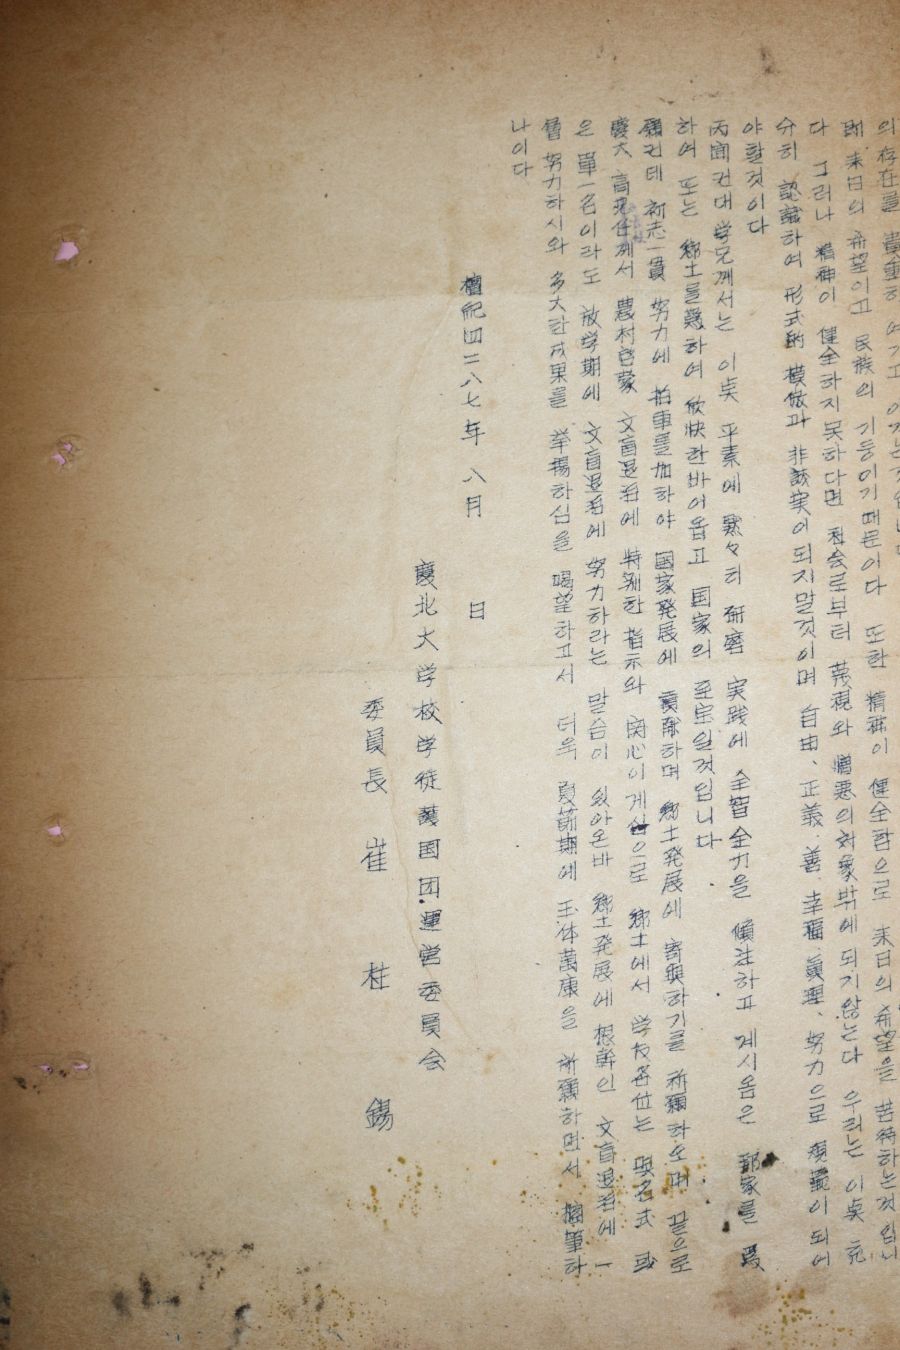 의 存在를 貴重히 여기고 아끼는것입니다
래 來日의 希望이고 民族의 기둥이기 때문이다 또한 精神이 健全함으로 来日의 希望을 苦待하는것입니
다 그러나 精神이 健全하지 못하다면 社会로부터 蔑視와 憎悪의 対象밖에 되지 않는다 우리는 이点 充
分히 認識하여 形式的 模倣과 非誠実이 되지말것이며 自由、正義、善、幸福、眞理、努力으로 이 되여
야 할것이다
丙閒컨대 学兄께서는 이点 平素에 黙々히 研磨 実践에 全智全力을 傾注하고 계시옴은 邦家를 爲
하여 또는 郷土를 爲하여 欣快한바이옵고 国家의 至宝일것입니다
願컨데 初志一貫 努力에 拍車를 加하야 国家発展에 貢献하며 郷土発展에 寄與하기를 祈願하오며 끝으로
慶大 高 任께서 農村啓蒙 文盲退治에 特別한 指示와 関心이 게심으로 郷土에서 学友各位는 或
은 單一名이라도 放学期에 文盲退治에 努力하라는 말슴이 있아온바 郷土発展에 根幹인 文盲退治에 一
層 努力하시와 多大한 成果를 挙揚하심을 渴望하고서 더욱 夏節期에 玉体萬康을 祈願하면서 擱筆하
나이다
檀紀四二八七年 八月 日
慶北大学校学徒護国団運営委員会
委員長 崔 桂 錫